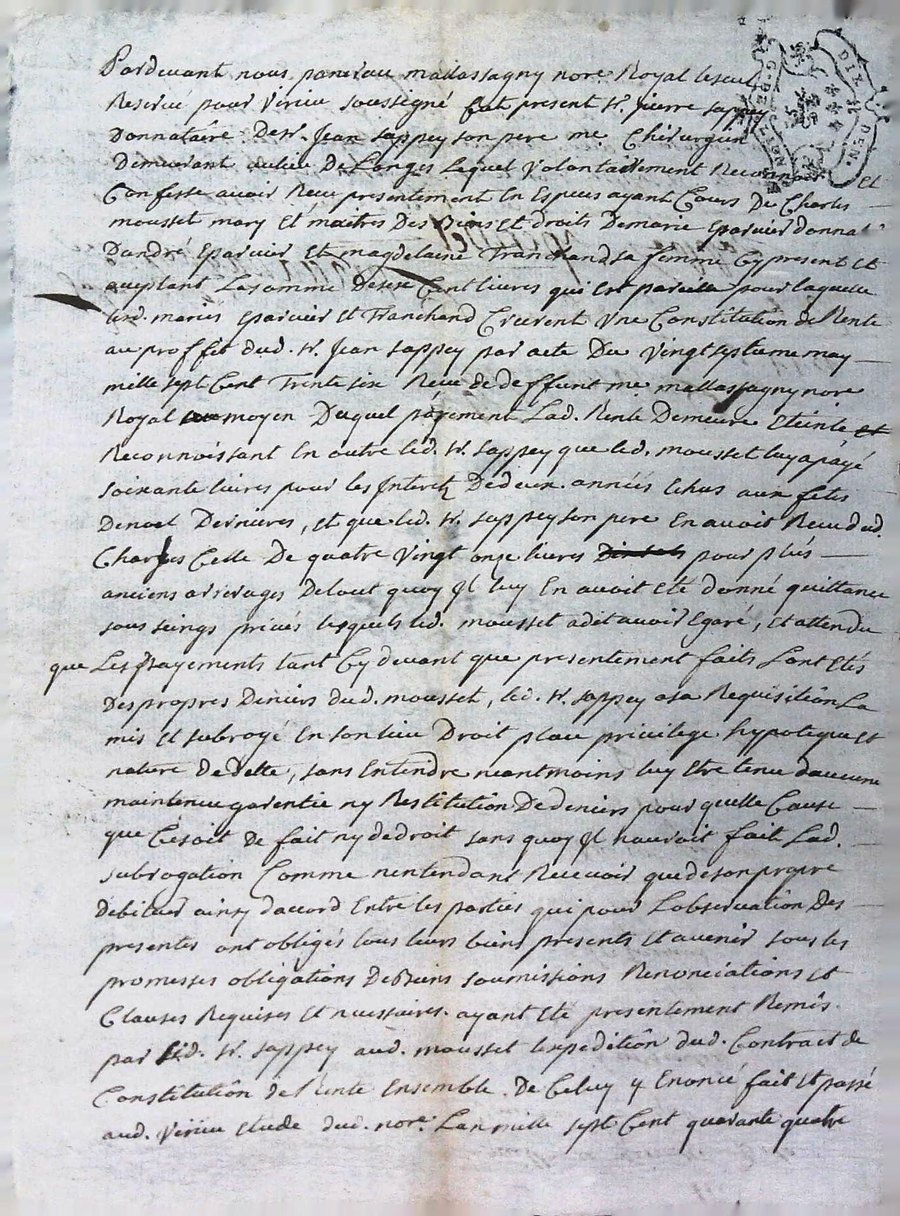 Pardevant nous pancrau mallassagny nore Royal
Reservé pour virieu soussigné fut present sr. pierre sappey
Donnataire De sr. Jean sappey son pere me. Chirurgien
Demeurant aulieu De Longes Lequel Volontairement Reconnoit et
Confesse avoir Receu presentement En Especes ayant Cours De Charles
mousset mary Et maitres Des Biens Et droits Demarie Eparvier donnat.
Dandré Eparvier Et magdelaine Tranchand sa femme Cy present et
aceptant La somme Desix Cent livres qui Est pareille pour laquelle
led. maries Eparvier Et Tranchand Creerent Vne Constitution de Rente
au proffet dud. sr. Jean sappey par acte Du Vingt septieme may
mille sept Cent Trente six Receu de deffunt me mallassagny nore
Royal moyen Duquel payement Lad. Rente Demeure Eteinte et
Reconnoissant En outre led. sr. sappey que led. mousset luy a payé
soixante livres pour les Interetz De deux années Echus aux fetes
Denoel Dernieres, et que led. sr. sappey son pere En avoit Receu dud.
Charles Celle De quatre Vingt onze livres pour plus
anciens arrerages Detout quoy Jl luy En avoit Eté donné quittance
sous seings privés lesquels led. mousset a dit avoir Egaré, Et attendu
que Les payements tant Cy devant que presentement faits sont Etés
Des propres Deniers dud. mousset, led. sr. sappey a sa Requisition La
mis Et subrogé En son lieu Droit place privilege hypoteque Et
nature De dette, sans Entendre neantmoins luy Etre tenu daucune
maintenue garentie ny Restitution De deniers pour quelle Cause
que Cesoit De fait ny de droit sans quoy Jl nauroit fait Lad.
subrogation Comme nentendant Recevoir que de son propre
Debiteur ainsy daccord Entre les parties qui pour Lobservation Des
presentes ont obligés tous leurs biens presents Et avenir sous les
promesses obligations De Biens soumissions Renonciations et
Clauses Requises Et necessaires. ayant Eté presentement Remis
par led. sr. sappey aud. mousset lexpedition dud. Contract de
Constitution de Rente Ensemble De Celuy y Enoncé fait Et passé
aud. Virieu Etude dud. nore. Lan mille sept Cent quarante quatre